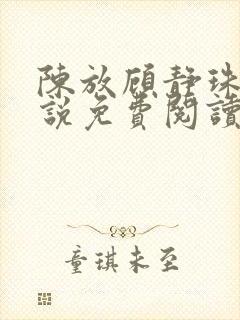 陳放顧靜珠
說免費閱讀
童琪未至